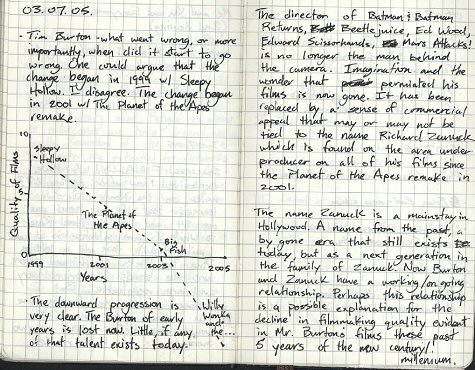 03.07.05.
· Tim Burton - what went wrong, or more
importantly, when did it start to go
wrong. One could argue that the
change began in 1999 w/ Sleepy
Hollow. I disagree. The change began
in 2001 w/ The Planet of the Apes
remake.
10
Sleepy
Hollow
Quality of Films
5
The Planet of
the Apes
Big
Fish
0
1999 2001 2003 2005
Years
Willy
Wonka
and the...
· The downward progression is
very clear. The Burton of early
years is lost now. Little, if any
of that talent exists today.
The director of Batman & Batman
Returns, Beetlejuice, Ed Wood,
Edward Scissorhands, Mars Attacks!
is no longer the man behind
the camera. Imagination and the
wonder that permiated his
films is now gone. It has been
replaced by a sense of commercial
appeal that may or may not be
tied to the name Richard Zanuck
which is found on the area under
producer on all of his films since
the Planet of the Apes remake in
2001.
The name Zanuck is a mainstay in
Hollywood. A name from the past, a
by gone era that still exists
today, but as a next generation in
the family of Zanuck. Now Burton
and Zanuck have a working/on going
relationship. Perhaps this relationship
is a possible explanation for the
decline in filmmaking quality evident
in Mr. Burtons films these past
5 years of the new century/
millenium.